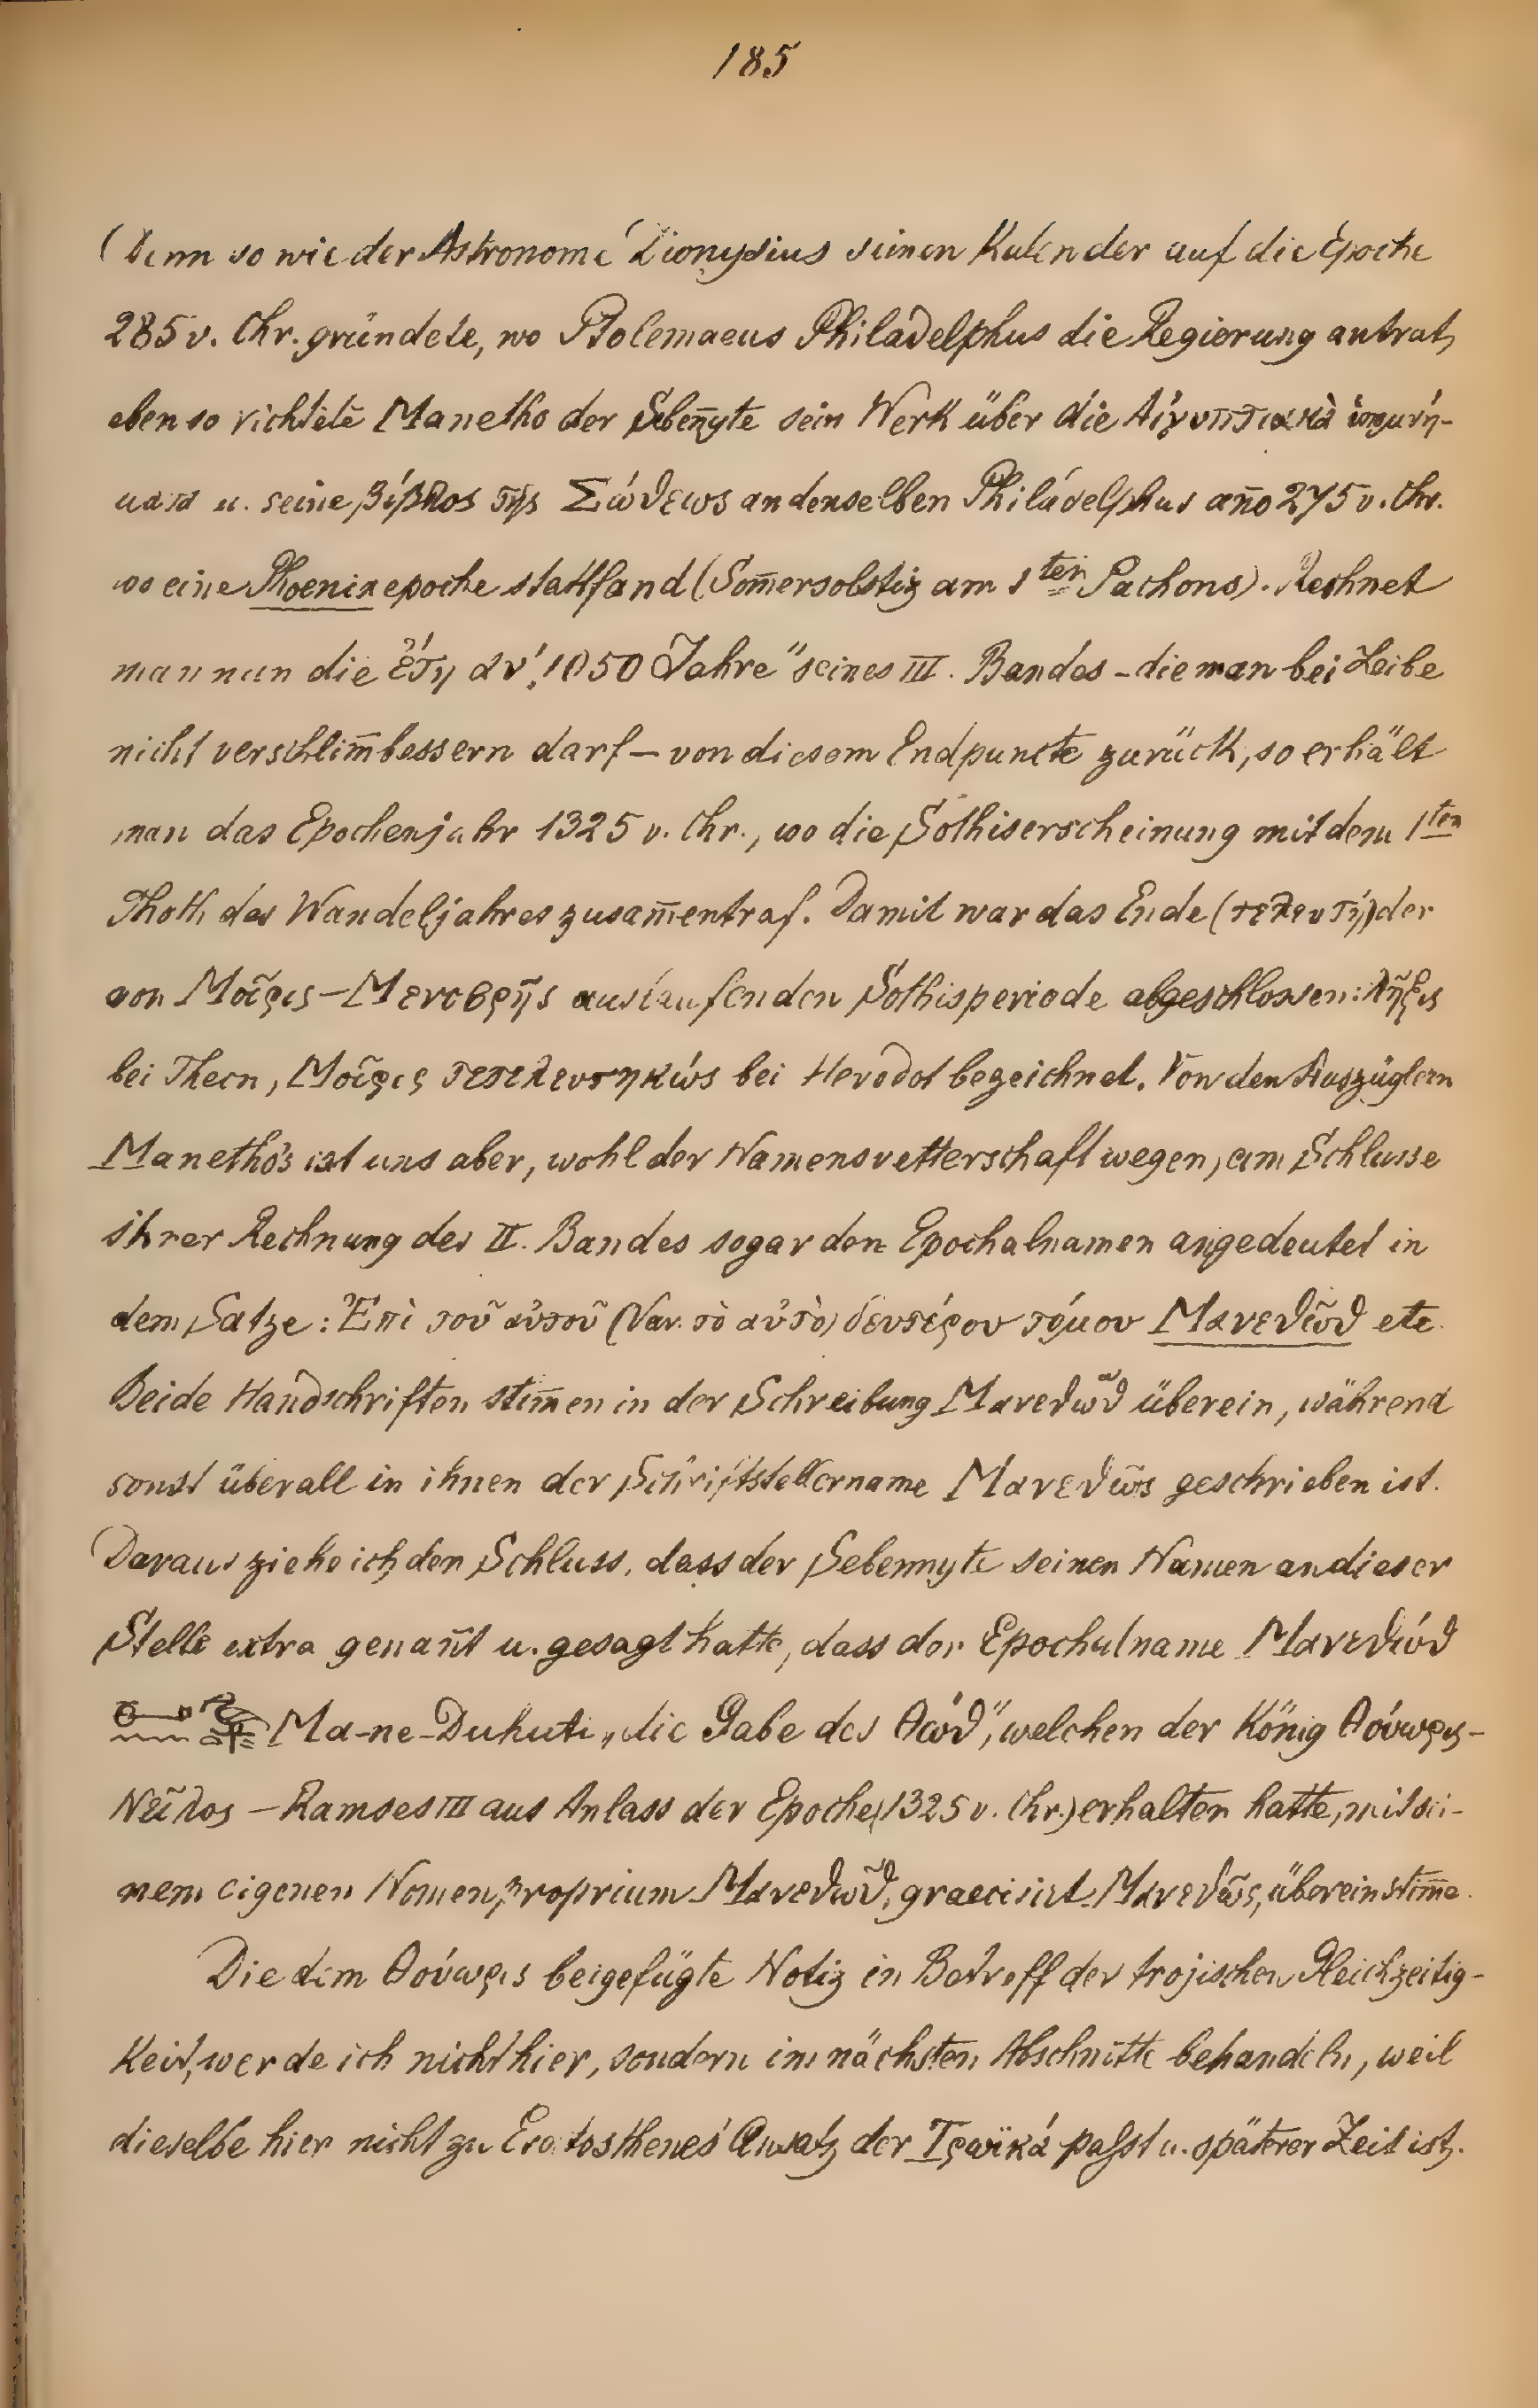 185
Denn so wie der Astronome Dionysius seinen Kalender auf die Epoche
285 v. Chr. gründete, wo Ptolemaeus Philadelphus die Regierung antrat,
ebenso richtete Manetho der Sebeñyte sein Werk über die Αἰγυπτιακὰ ὑπομνή-
ματα u. seine βίβλος τῆς Σώθεως an denselben Philadelphus año 275 v. Chr.
wo eine Phoenixepoche stattfand (Som̄ersolstiz am 1ten Pachons). Rechnet
man nun die ἔτη αν' „1050 Jahre" seines III. Bandes – die man bei Leibe
nicht verschlim̄bessern darf – von diesem Endpuncte zurück, so erhält
man das Epochenjahr 1325 v. Chr., wo die Sothiserscheinung mit dem 1ten
Thoth des Wandeljahres zusam̄entraf. Damit war das Ende (τελευτή) der
von Μοῖρις–Μενοφρῆς auslaufenden Sothisperiode abgeschlossen: λῆξις
bei Theon, Μοῖρις τετελευτηκώς bei Herodot bezeichnet. Von den Auszüglern
Manetho's ist uns aber, wohl der Namensvetterschaft wegen, am Schlusse
ihrer Rechnung des II. Bandes sogar den Epochalnamen angedeutet in
dem Satze: Ἐπὶ τοῦ αὐτοῦ (Var. τὸ αὐτὸ) δευτέρου τόμου Μανεθῶθ etc.
Beide Handschriften stim̄en in der Schreibung Μανεθῶθ überein, während
sonst überall in ihnen der Schriftstellername Μανεθῶς geschrieben ist.
Daraus ziehe ich den Schluss, dass der Sebennyte seinen Namen an dieser
Stelle extra genañt u. gesagt hatte, dass der Epochalname Μανεθώθ
Ma-ne-Duhuti „die Gabe des Θωθ", welchen der König Θούωρις-
Νεῖλος – Ramses III aus Anlass der Epoche (1325 v. Chr.) erhalten hatte, mit sei-
nem eigenen Nomen proprium Μανεθῶθ, graecisirt Μανεθῶς, übereinstim̄e.
Die dem Θούωρις beigefügte Notiz in Betreff der trojischen Gleichzeitig-
keit, werde ich nicht hier, sondern im nächsten Abschnitte behandeln, weil
dieselbe hier nicht zu Eratosthenes' Ansatz der Τρωϊκά paßt u. späterer Zeit ist.